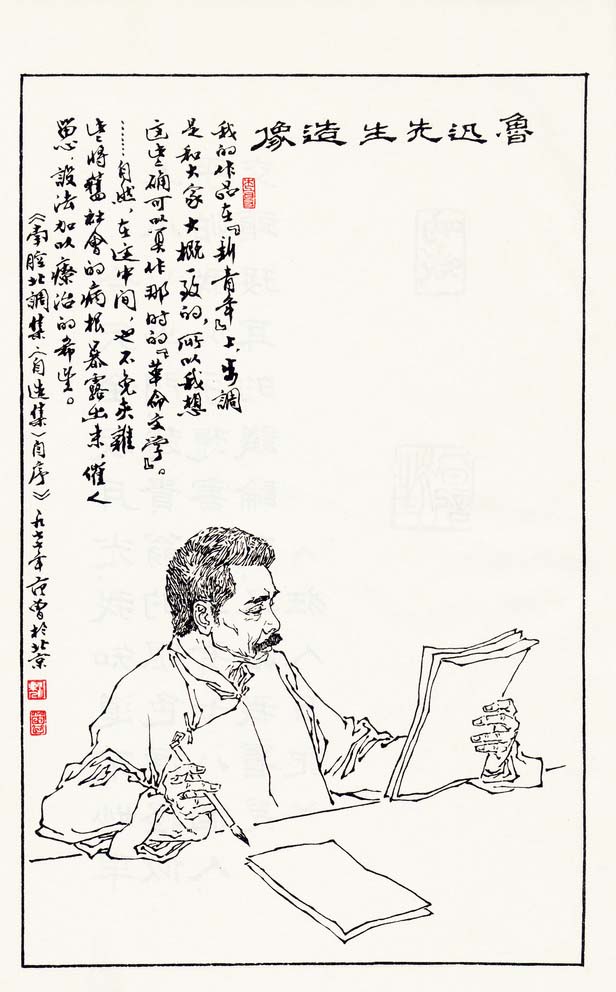 魯迅先生造像
我的作品在『新青年』上,步調
是和大家大概一致的,所以我想
這些确可以算作那時的『革命文學』。
……自然,在這中间,也不免夾雜
些將舊社會的病根暴露出来,催人
留心,設法加以療治的希望。
《南腔北調集·〈自选集〉自序》 一九七七年范曾於北京